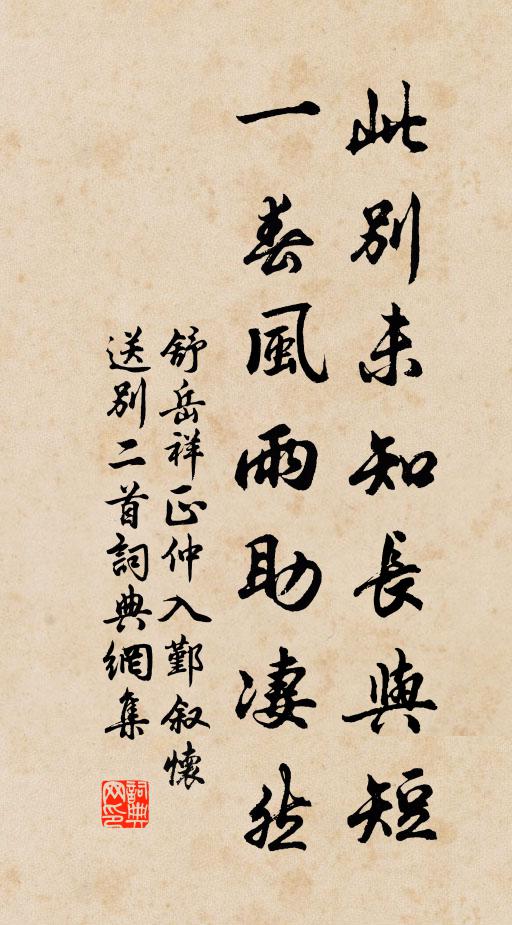 此別未知長與短
一春風雨助凄然
舒岳祥正仲入鄞叙懷
送別二首詞典網集
詞典
网印